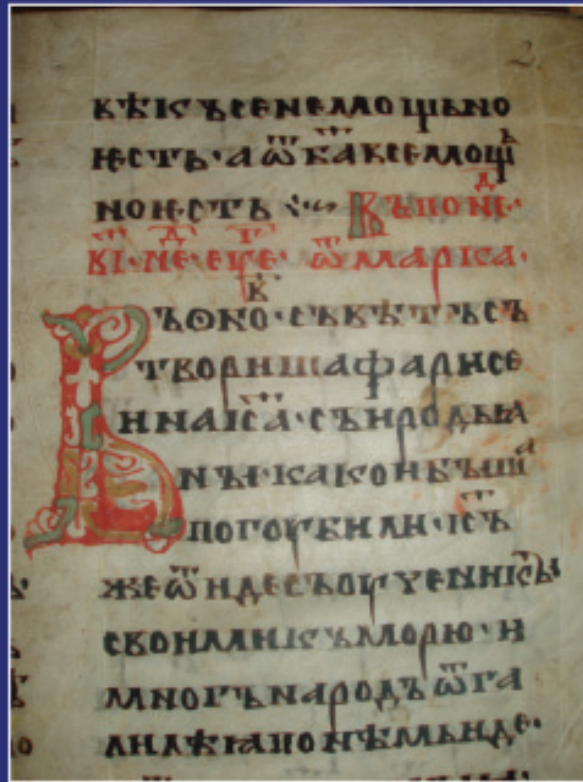 2.
вѣкъсенемощьно
ѥсть· а ѿ ба ксемощь
но ѥсть въ поне·
ві· не· еѵⷢ҇е· ѿ марка·
ъ оно· съвѣтъ съ
твориша фарисе
и на іс҃а· съ иродьꙗ
нꙑ· како и бꙑша
погоубили· іс҃ъ
же ѿиде съ оученикꙑ
своими къ морю· и
многъ народъ ѿ га
лилѣꙗ по немь иде·